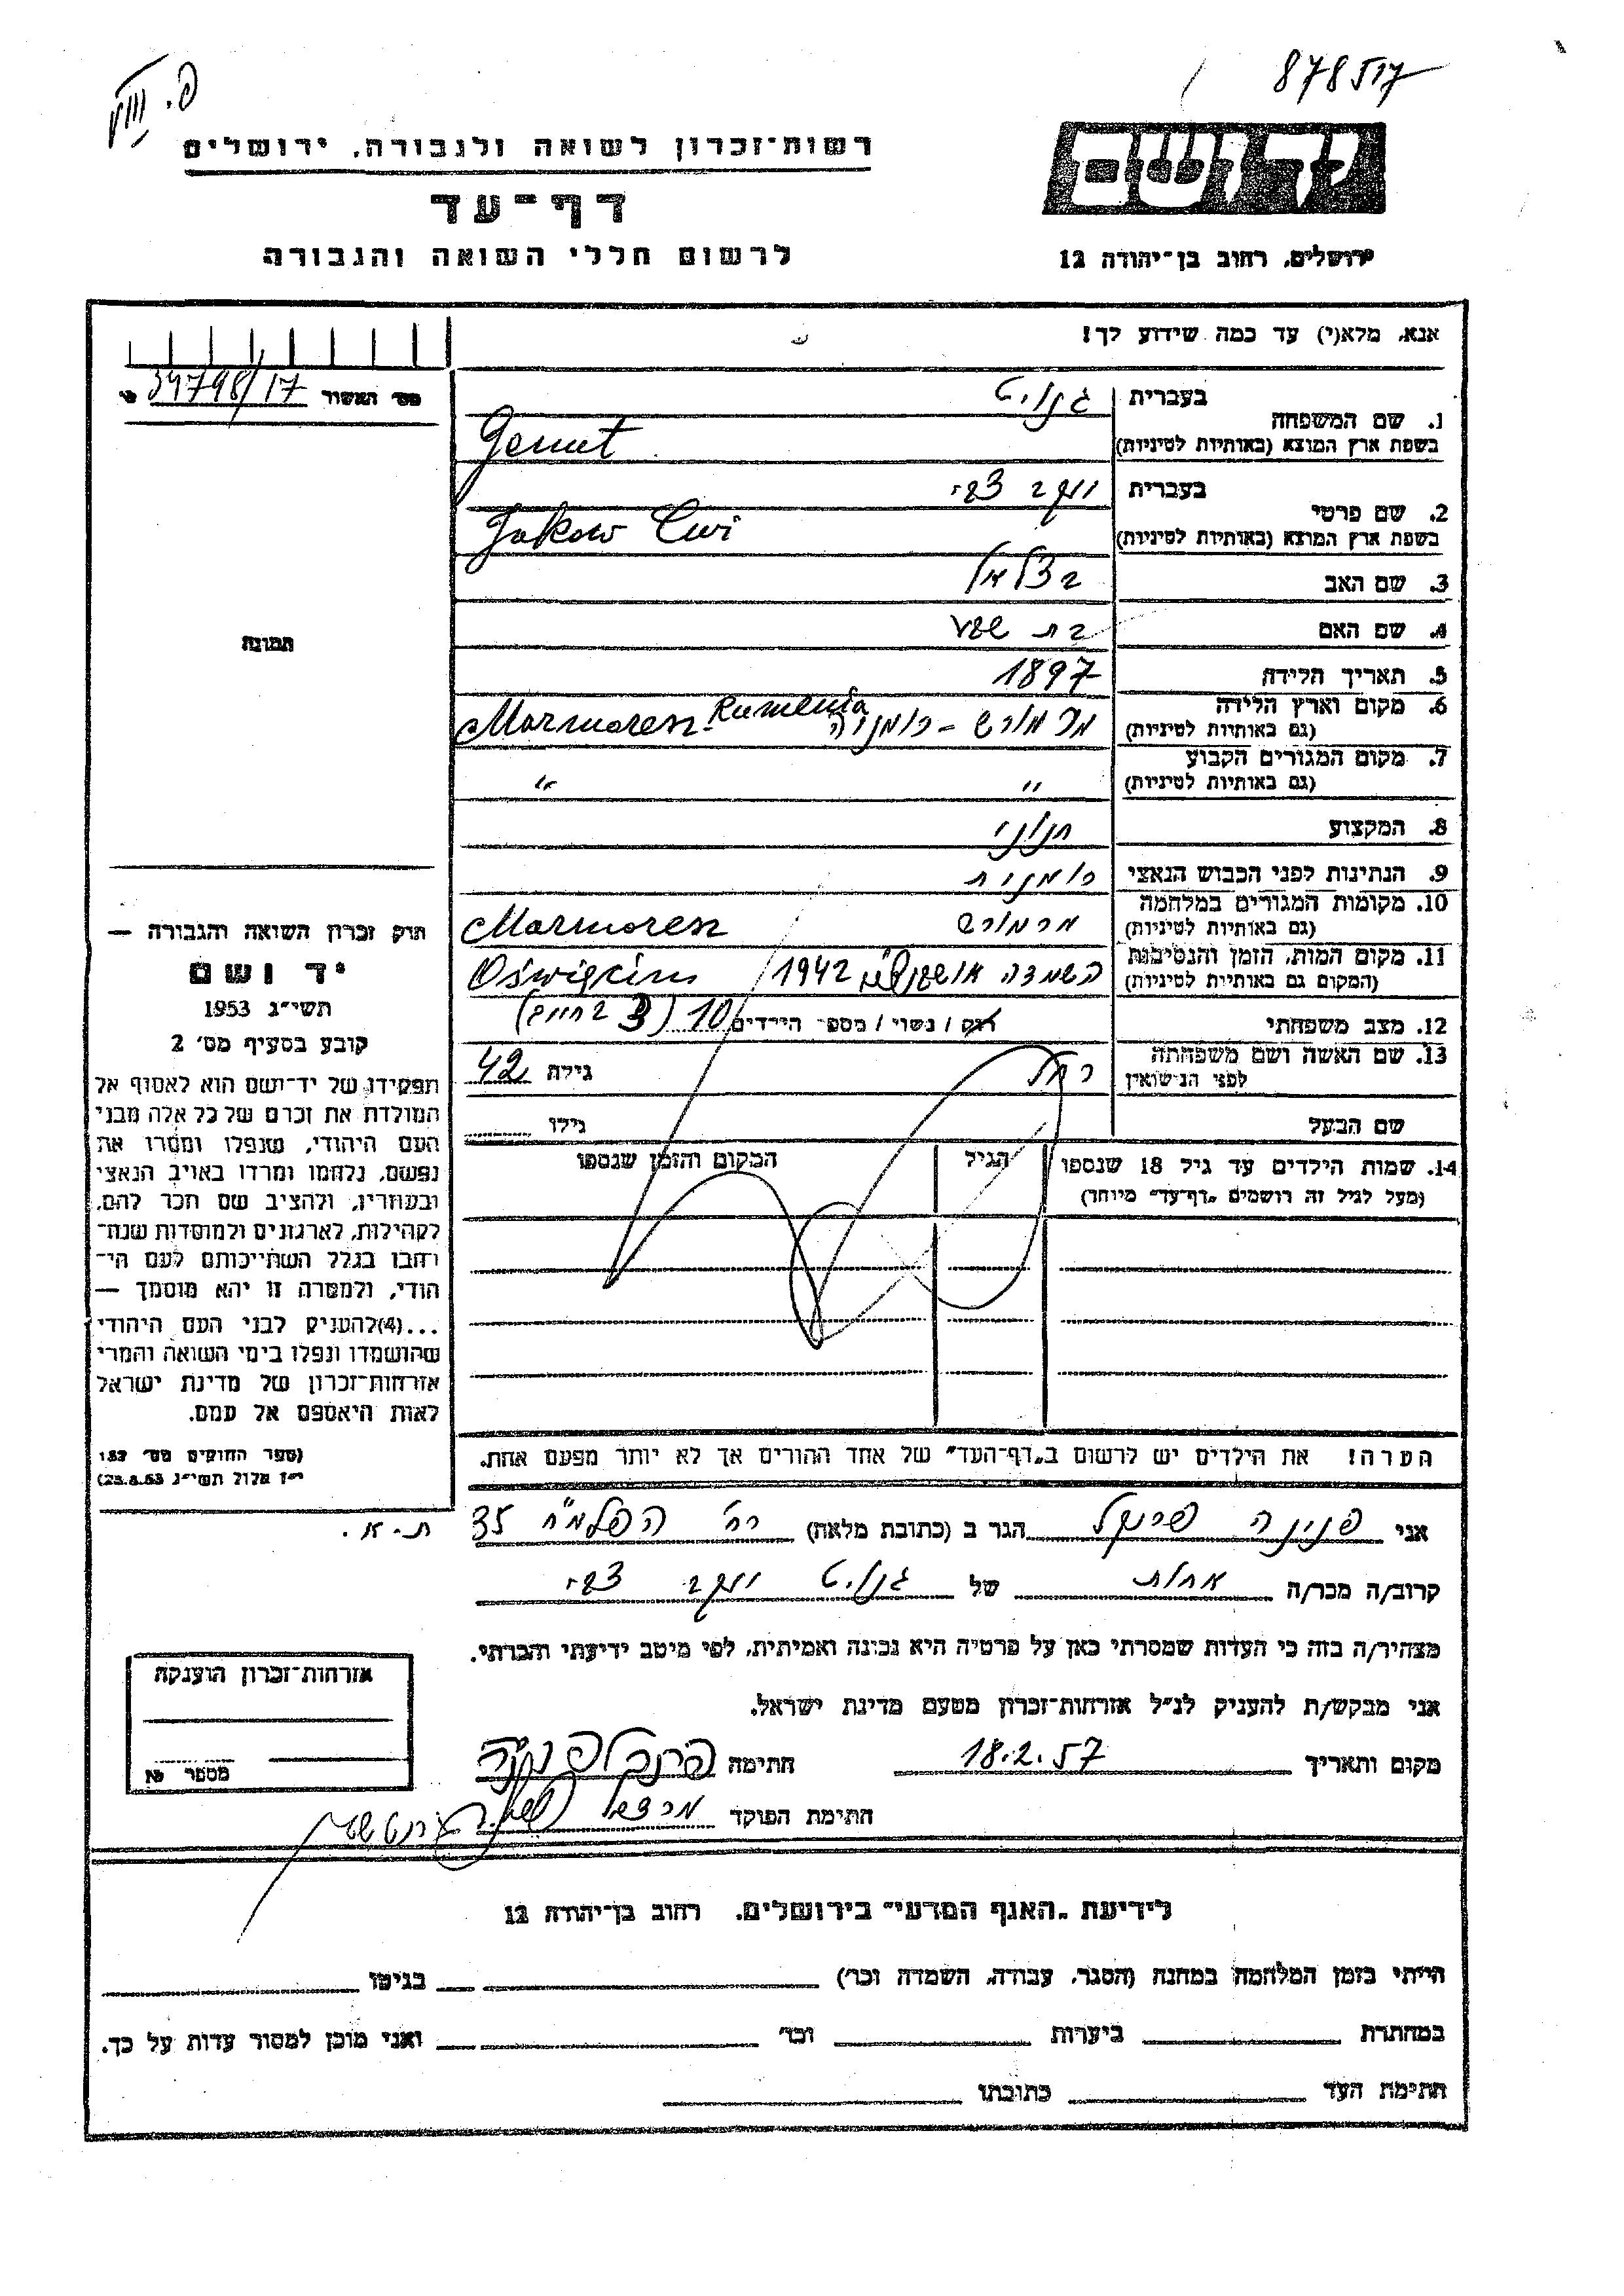 878517
רשות־זכרון לשואה ולגבורה, ירושלים
דף־עד
לרשום חללי השואה והגבורה
יד ושם
ירושלים, רחוב בן־יהודה 12
אנא, מלא(י) עד כמה שידוע לך!
מס׳ האשור 34798/17
1. שם המשפחה
בעברית
בשפת ארץ המוצא (באותיות לטיניות) Gemut
2. שם פרטי
בעברית יעקב צבי
בשפת ארץ המוצא (באותיות לטיניות) Jakow Cwi
3. שם האב בצלאל
4. שם האם בת שבע
5. תאריך הלידה 1897
6. מקום וארץ הלידה (גם באותיות לטיניות) מרמורש - רומניה Marmoresz - Rumenia
7. מקום המגורים הקבוע (גם באותיות לטיניות) " "
8. המקצוע חנוני
9. הנתינות לפני הכבוש הנאצי רומנית
10. מקומות המגורים במלחמה (גם באותיות לטיניות) מרמורש Marmoresz
11. מקום המות, הזמן והנסיבות (המקום גם באותיות לטיניות) השמדה 1942 Oświęcim
12. מצב משפחתי רוק / נשוי / מספר הילדים 10 (3 בחיים)
13. שם האשה ושם משפחתה לפני הנישואין רחל גילה 42
שם הבעל גילו
14. שמות הילדים עד גיל 18 שנספו (מעל לגיל זה רושמים "דף־עד" מיוחד)
הגיל
המקום והזמן שנספו
תמונה
חוק זכרון השואה והגבורה —
יד ושם
תשי״ג 1953
קובע בסעיף מס׳ 2
תפקידו של יד־ושם הוא לאסוף אל
המולדת את זכרם של כל אלה מבני
העם היהודי, שנפלו ומסרו את
נפשם, נלחמו ומרדו באויב הנאצי
ובעוזריו, ולהציב שם וזכר להם,
לקהילות, לארגונים ולמוסדות שנח־
רבו בגלל השתייכותם לעם הי־
הודי, ולמטרה זו יהא מוסמך —
...(4) להעניק לבני העם היהודי
שהושמדו ונפלו בימי השואה והמרי
אזרחות־זכרון של מדינת ישראל
לאות היאספם אל עמם.
(ספר החוקים מס׳ 132
י״ז אלול תשי״ג 28.8.53)
הערה! את הילדים יש לרשום ב"דף־העד" של אחד ההורים אך לא יותר מפעם אחת.
אני פנינה פרנקל הגר ב (כתובת מלאה) רח׳ הפלמ״ח 35 ת-א.
קרוב/ה מכר/ה אחות של יעקב צבי
מצהיר/ה בזה כי העדות שמסרתי כאן על פרטיה היא נכונה ואמיתית, לפי מיטב ידיעתי והכרתי.
אני מבקש/ת להעניק לנ״ל אזרחות־זכרון מטעם מדינת ישראל.
מקום ותאריך 18.2.57 חתימה
חתימת הפוקד
אזרחות־זכרון הוענקה
מספר №
לידיעת "האגף המדעי" בירושלים, רחוב בן־יהודה 12
הייתי בזמן המלחמה במחנה (הסגר, עבודה, השמדה וכו׳) בגיטו
במחתרת ביערות וכו׳ ואני מוכן למסור עדות על כך.
חתימת העד כתובתו